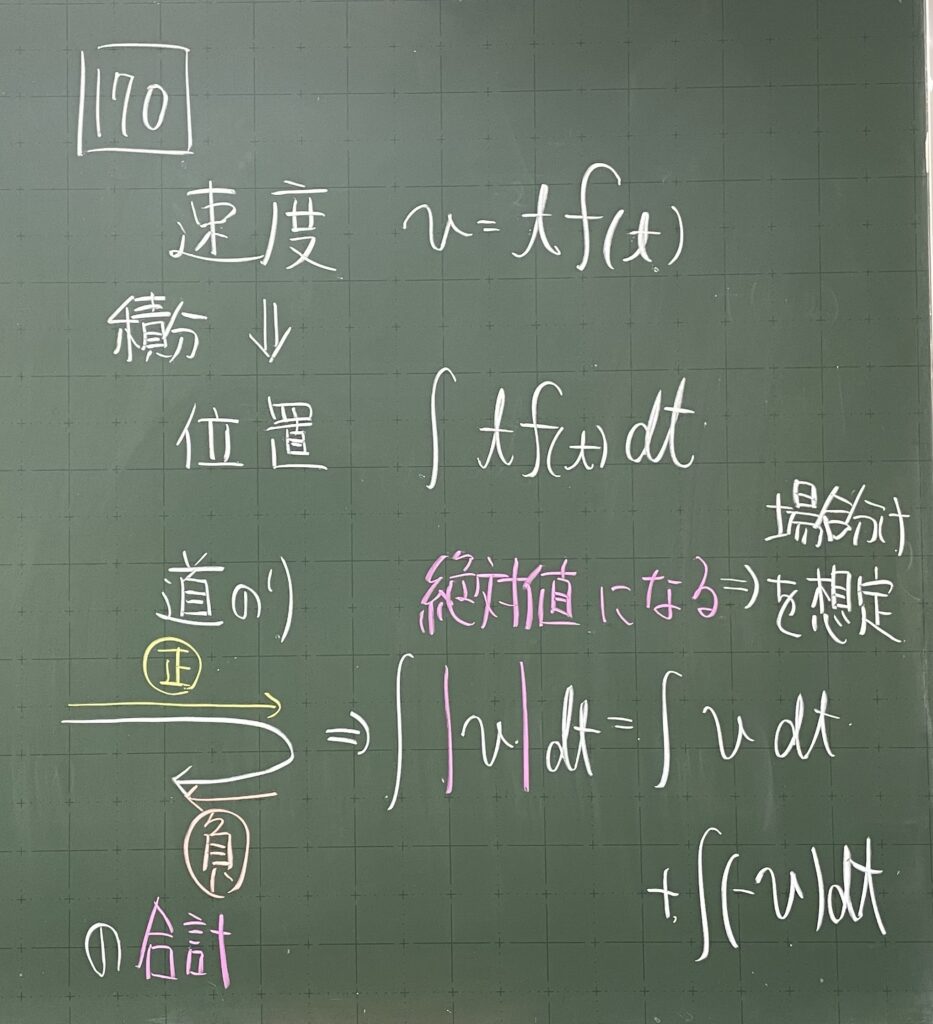 170
速度 v=tf(t)
積分 ⇓
位置 ∫tf(t)dt
場合分け
道のり 絶対値になる⇒を想定
正
⇒∫|v|dt=∫v dt
負
+∫(-v)dt
の合計